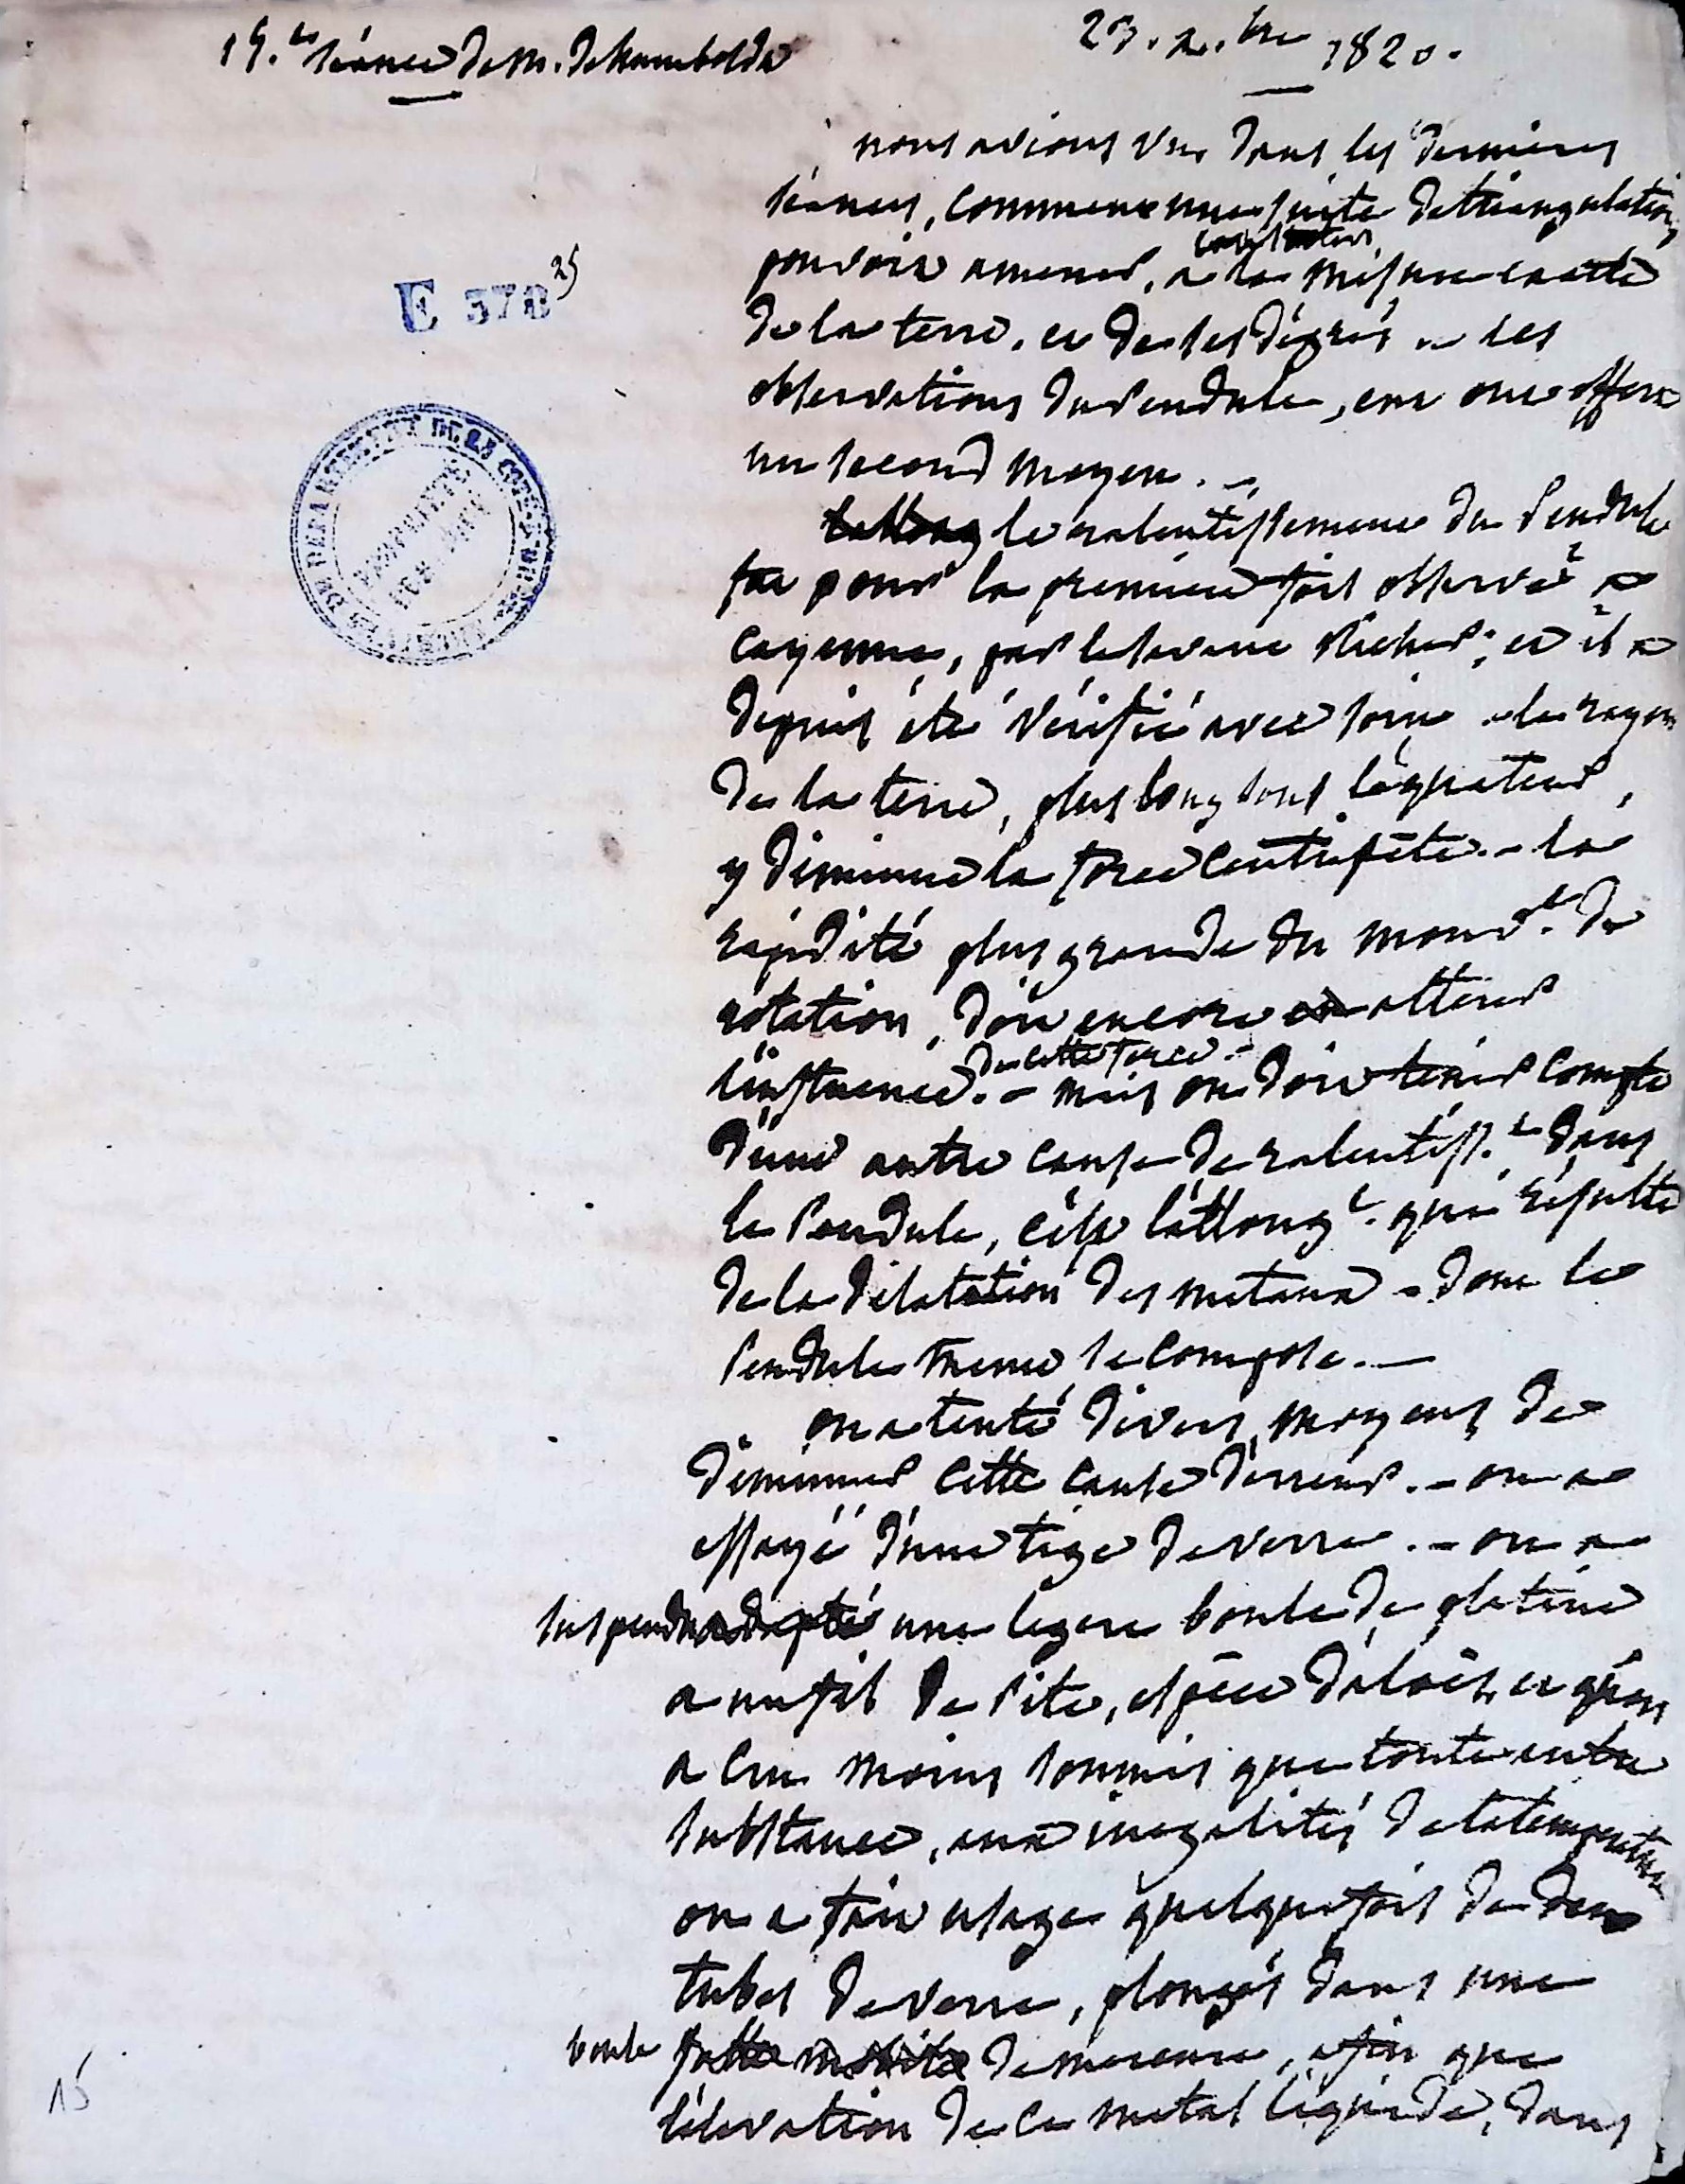 15.e séance de m. de humboldt
23. x.bre 1820.
nous avions vu dans les dernieres
séances, comment une suite de triangulations
pouvoit amener, à la mesure exacte
de la terre, et de ses dégrés .. les
observations du Pendule, en ont offert
un second moyen. -.
E 378 25
le ralentissement du Pendule
fut pour la premiere fois observé à
Cayenne, par le savant Richer; et il a
depuis été vérifié avec soin .. le rayon
de la terre, plus long sous l'équateur,
y diminue la force centripête. - la
rapidité plus grande du mouv.t de
rotation, doit encore altérer
de cette force. -
l'influence. - mais on doit tenir compte
d'une autre cause de ralentiss.t dans
le Pendule, c'est l'allong.t qui résulte
de la dilatation des metaux - dont le
Pendule meme se compose. —
on a tenté divers moyens de
diminuer cette cause d'erreur. - on a
essayé d'une tige de verre. - on a
suspendu adapté une legere boule de platine
a un fil de Pite, espèce d'aloës, et qu'on
a cru moins soumis que toute autre
substance, aux inegalités de la temperature
on a fait usage quelquefois de deux
tubes de verre, plongés dans une
boule de mercure, afin que
l'élévation de ce metal liquide, dans
15